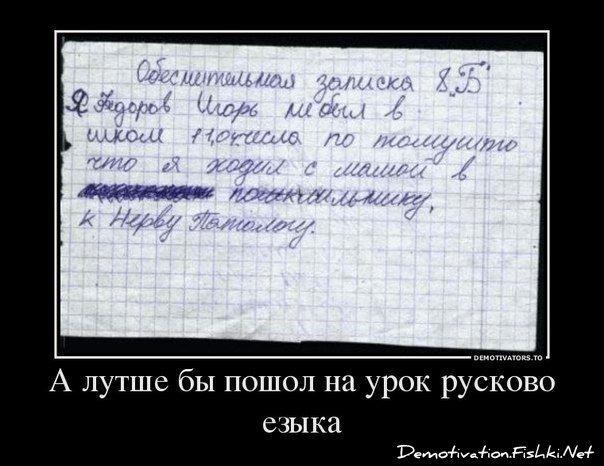 Обеснительная записка 8 „Б"
Я Федоров Игорь не был в
школ 11,04 числа по томушто
что я ходил с мамой в
к Нерву Патологу.
DEMOTIVATORS.TO
А лутше бы пошол на урок русково
езыка
Demotivation.Fishki.Net